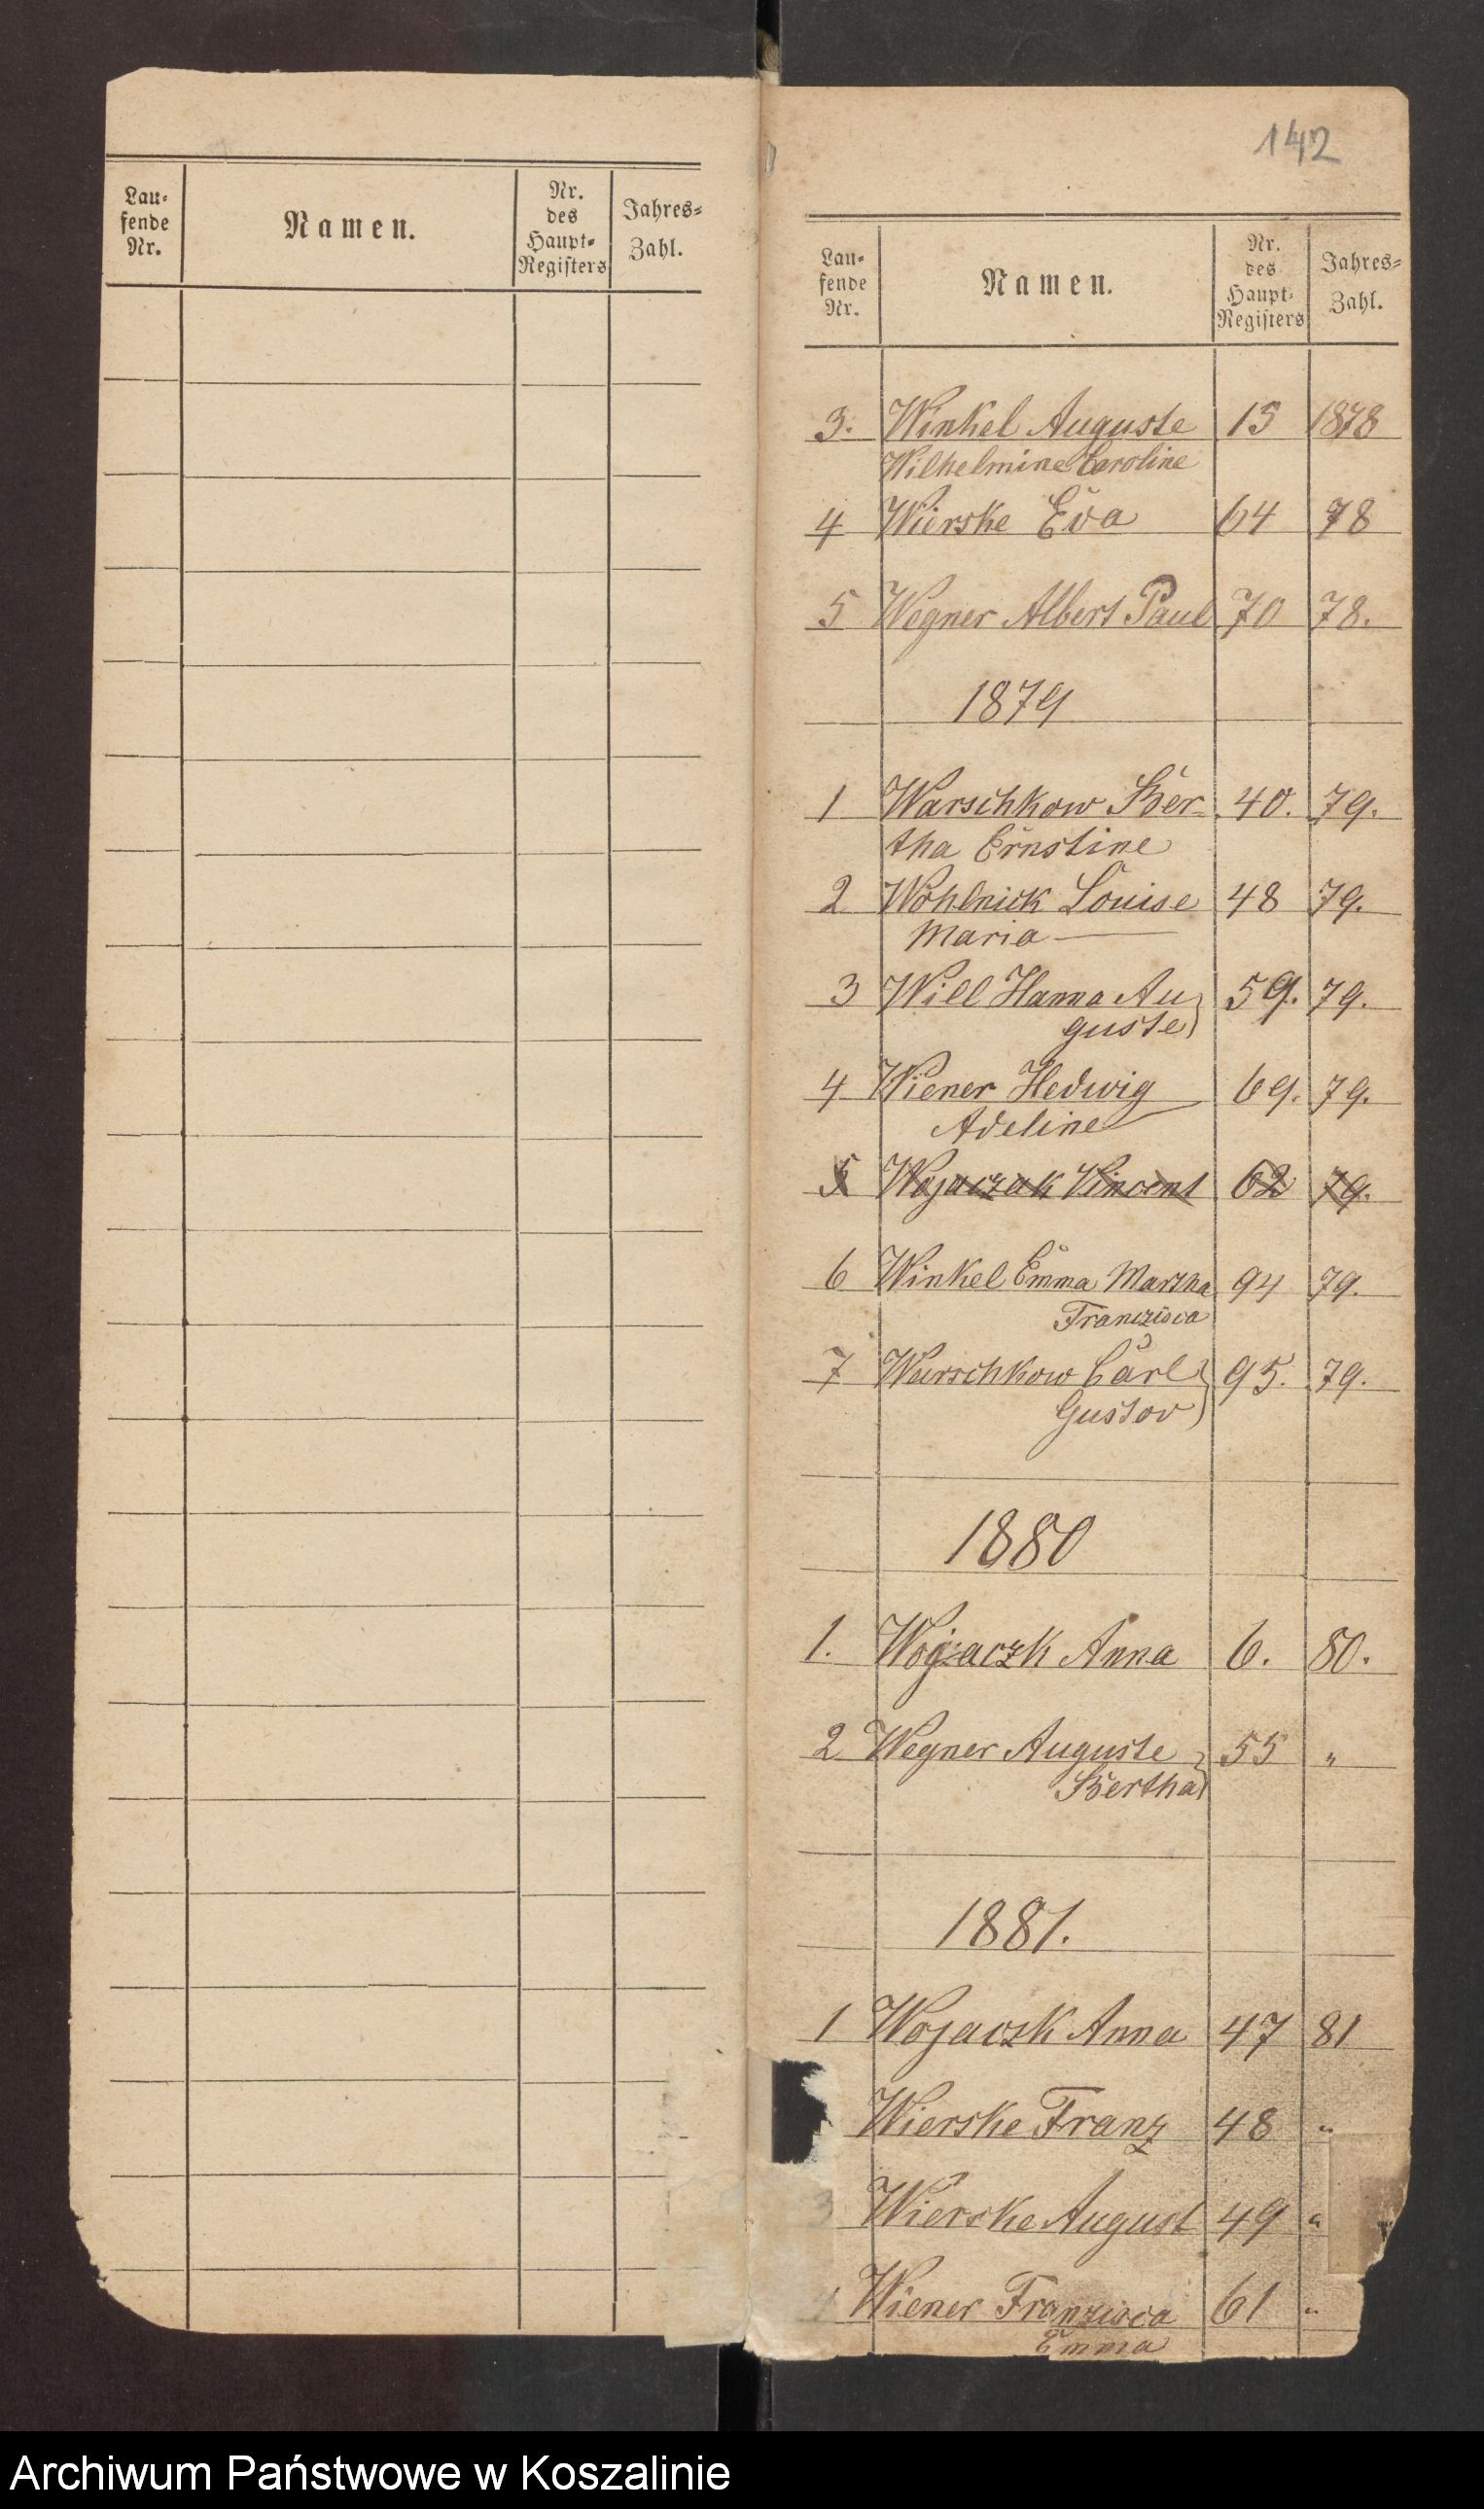 Lau-
fende
Nr.
Namen.
Nr.
des
Haupt-
Registers
Jahres-
Zahl.
142
Lau-
fende
Nr.
Namen.
Nr.
des
Haupt-
Registers
Jahres-
Zahl.
3. Winkel Auguste 15 1878
Wilhelmine Caroline
4 Wierske Eva 64 78
5 Wegner Albert Paul 70 78.
1879
1 Warschkow Ber- 40. 79.
tha Ernstine
2 Wohlnick Louise 48 79.
Maria
3 Will Hanna Au 59. 79.
guste
4 Wiener Hedwig 69. 79.
Adeline
5 Wojaczak Vincent 62 79.
6 Winkel Emma Martha 94 79.
Franczisca
7 Warschkow Carl 95. 79.
Gustav
1880
1. Wojaczk Anna 6. 80.
2 Wegner Auguste 55 "
Bertha
1881.
1 Wojaczk Anna 47 81
Wierske Franz 48 "
3 Wierske August 49 "
Wiener Franzisca 61 "
Emma
Archiwum Państwowe w Koszalinie